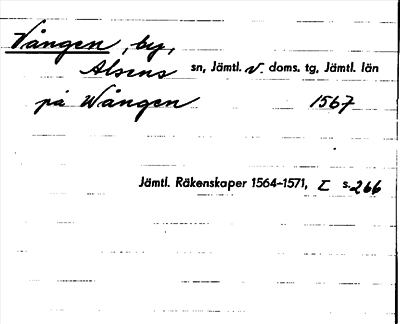 Vången, by,
Alsens sn, Jämtl. v. doms. tg, Jämtl. län
på Wången 1567
Jämtl. Räkenskaper 1564-1571, I s. 266